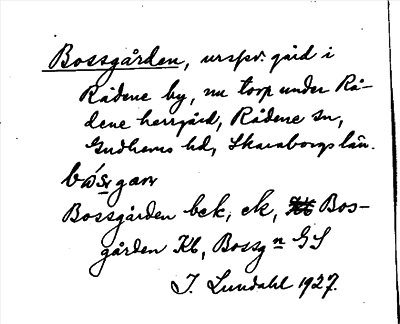 Bossgården, urspr. gård i
Rådene by, nu torp under Rå-
dene herrgård, Rådene sn,
Gudhems hd, Skaraborgs län.
Bossgården bek, ek, Bos-
gården Kb, Bossgn GS
J. Lundahl 1927.